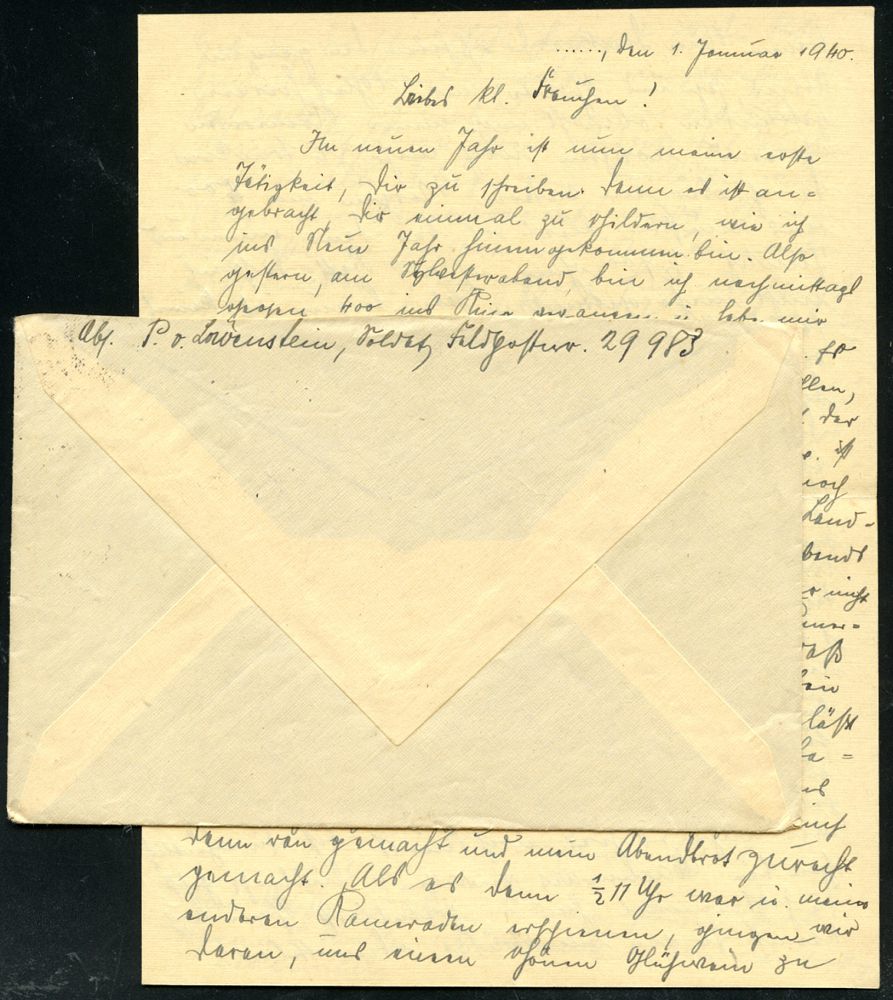 ......, den 1. Januar 1940.
Liebes kl. Frauchen!
Im neuen Jahr ist nun meine erste
Tätigkeit, Dir zu schreiben. Denn es ist an=
gebracht, Dir einmal zu schildern, wie ich
ins Neue Jahr hineingekommen bin. Also
gestern, am Sylvesterabend, bin ich nachmittags
gegen 4oo ins u. habe mir
Abs. P. v. Löwenstein, Soldat, Feldpostnr. 29 983
llen,
der
ist
noch
Land=
bends
nicht
mer=
daß
läßt
=
dann ran gemacht und mein Abendbrot zurecht
gemacht. Als es dann ½ 11 Uhr war u. meine
anderen Kameraden erschienen, gingen wir
daran, uns einen schönen Glühwein zu